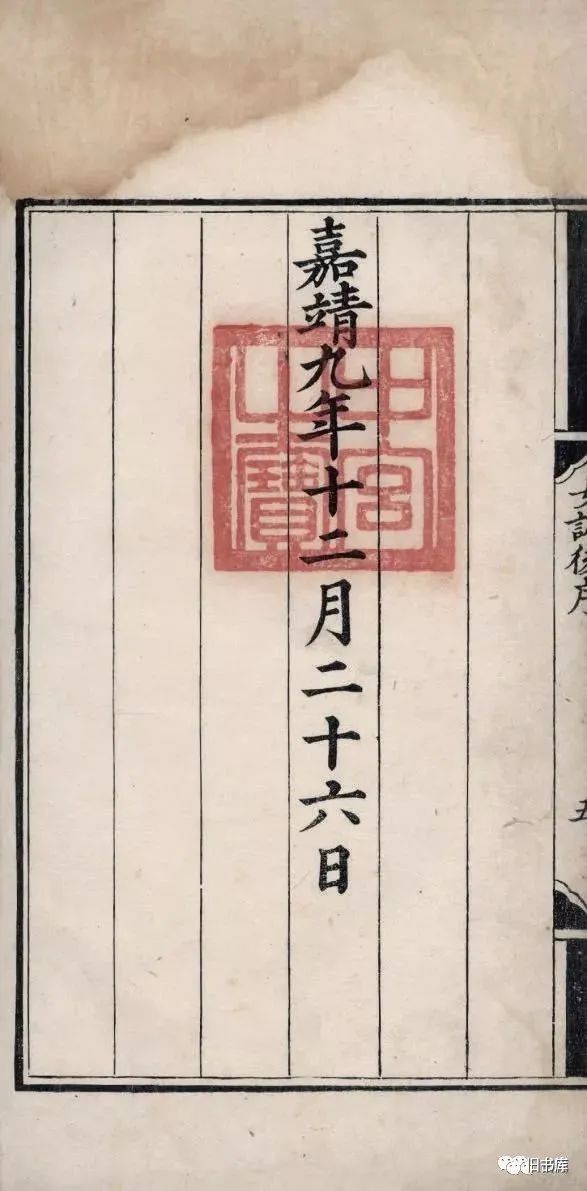 嘉靖九年十二月二十六日
中宮之寶
女訓後序
五
旧书库